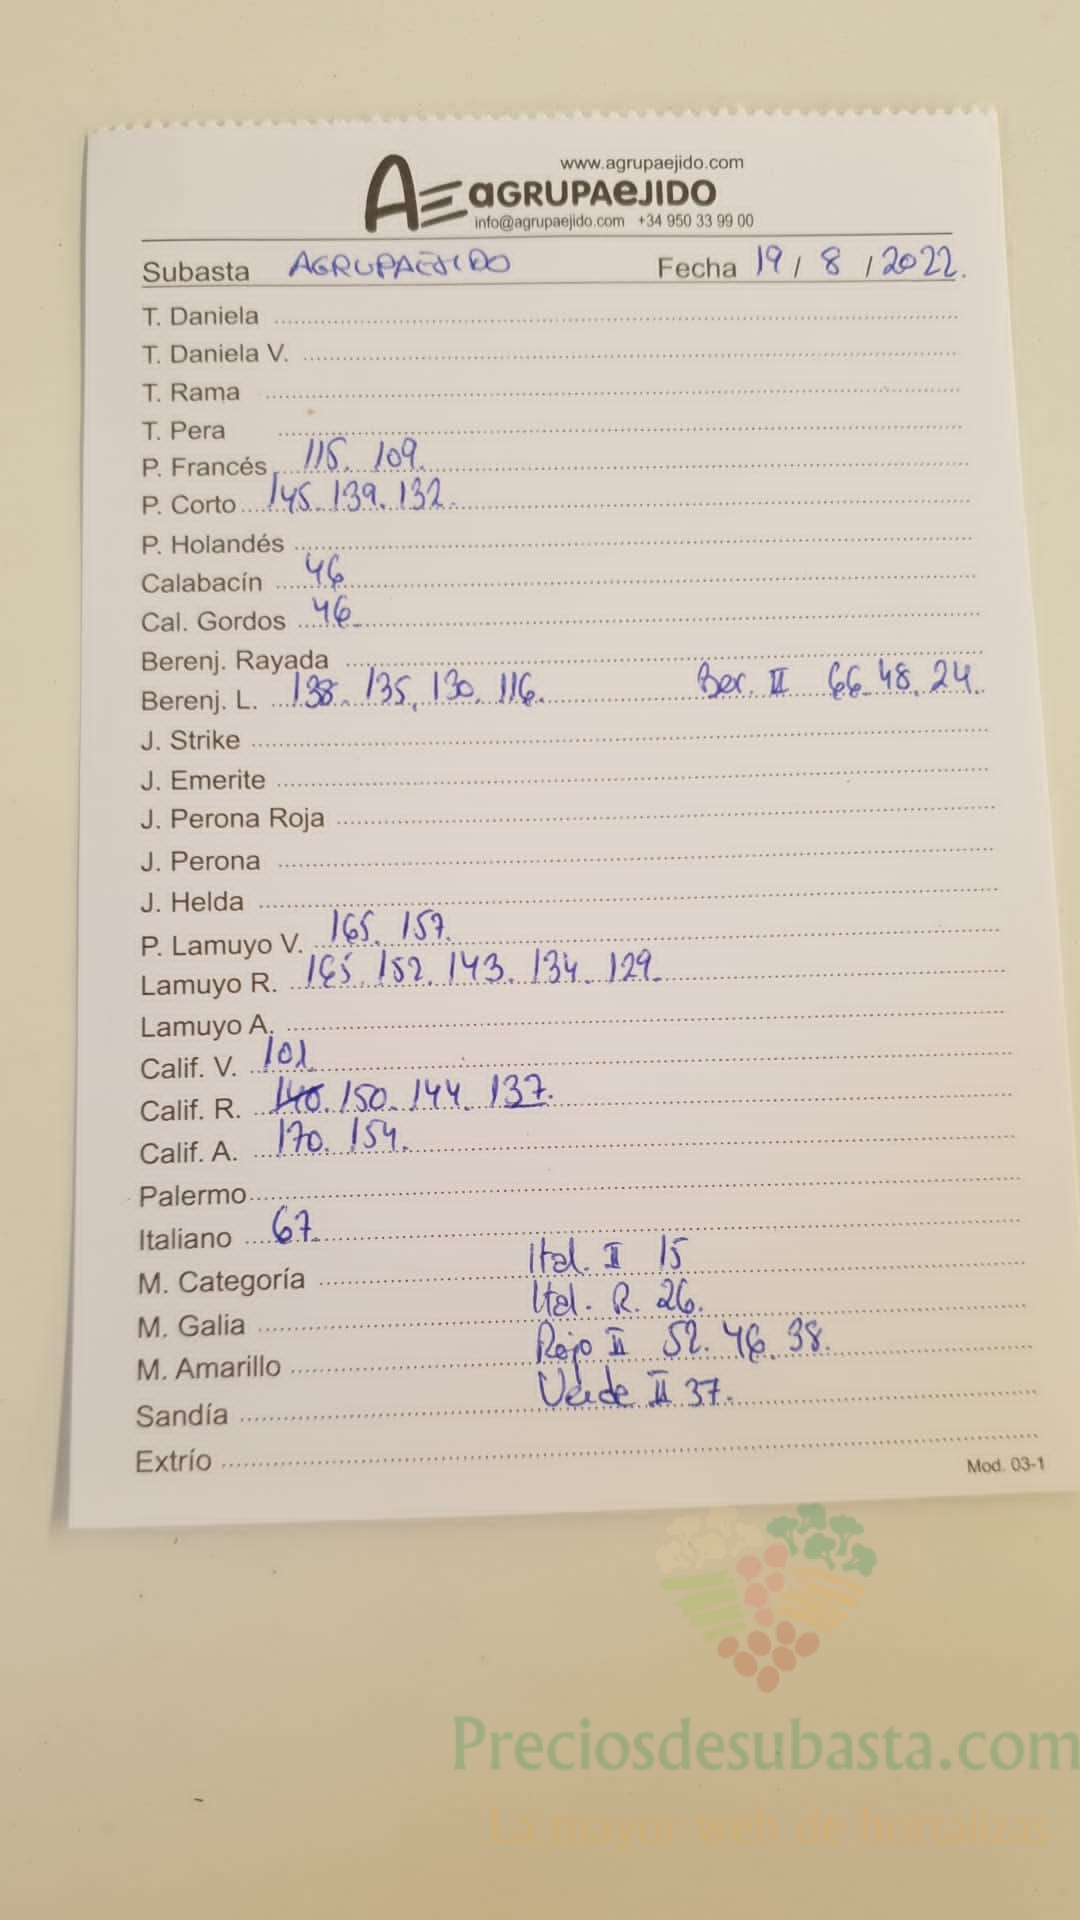 www.agrupaejido.com
AE aGRUPAeJIDO
info@agrupaejido.com +34 950 33 99 00
Subasta AGRUPAEJIDO Fecha 19 / 8 / 2022.
T. Daniela
T. Daniela V.
T. Rama
T. Pera
P. Francés 115. 109.
P. Corto 145. 139. 132.
P. Holandés
Calabacín 46
Cal. Gordos 46
Berenj. Rayada
Berenj. L. 138. 135. 130. 116. Ber. II 66. 48. 24.
J. Strike
J. Emerite
J. Perona Roja
J. Perona
J. Helda
P. Lamuyo V. 165. 157.
Lamuyo R. 165. 152. 143. 134. 129.
Lamuyo A.
Calif. V. 101
Calif. R. 150. 144. 137.
Calif. A. 170. 154.
Palermo
Italiano 67
M. Categoría Ital. II 15
M. Galia Ital. R. 26.
M. Amarillo Rojo II 52. 46. 38.
Sandía Verde II 37.
Extrío
Mod. 03-1
Preciosdesubasta.com
La mayor web de hortalizas